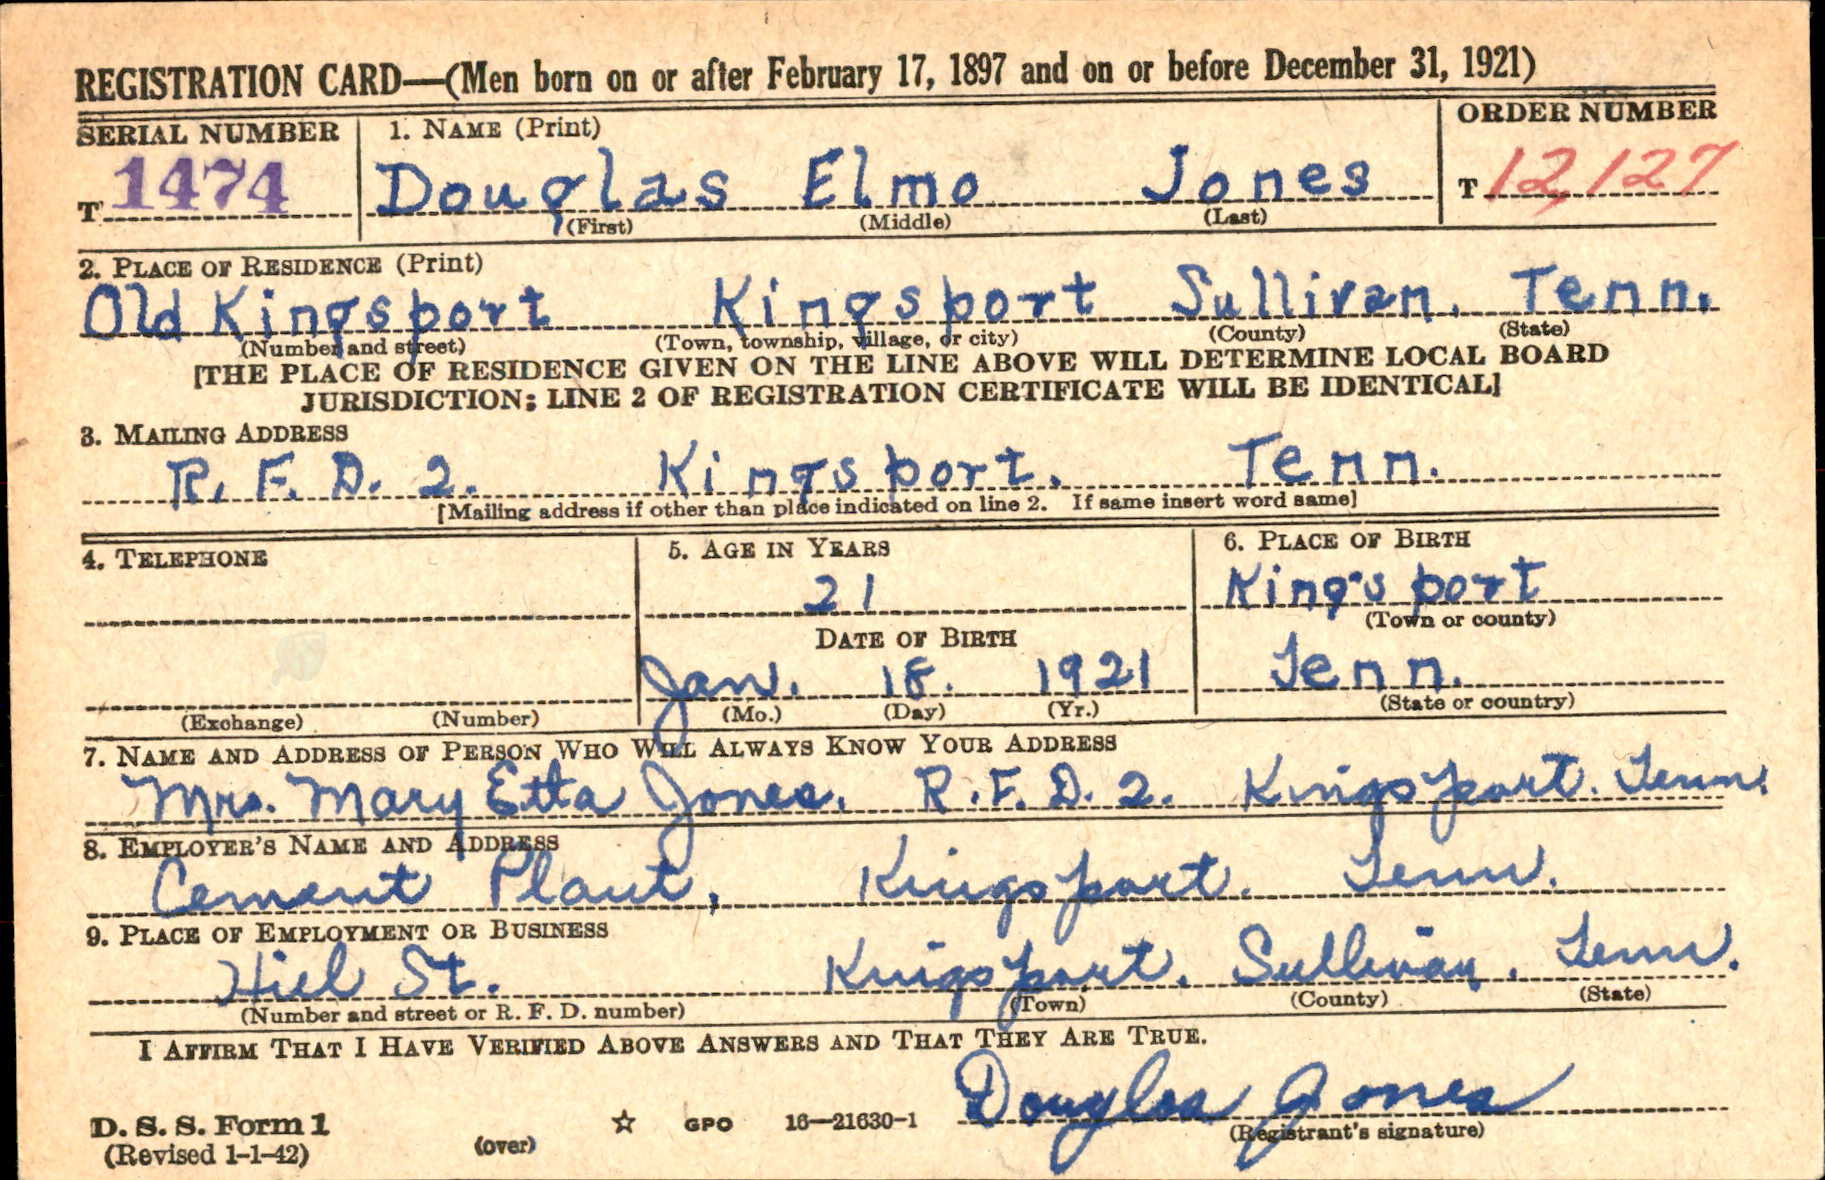 REGISTRATION CARD—(Men born on or after February 17, 1897 and on or before December 31, 1921)
SERIAL NUMBER 1. NAME (Print) ORDER NUMBER
T 1474 Douglas Elmo Jones T 12,127
(First) (Middle) (Last)
2. PLACE OF RESIDENCE (Print)
Old Kingsport Kingsport Sullivan. Tenn.
(Number and street) (Town, township, village, or city) (County) (State)
[THE PLACE OF RESIDENCE GIVEN ON THE LINE ABOVE WILL DETERMINE LOCAL BOARD
JURISDICTION; LINE 2 OF REGISTRATION CERTIFICATE WILL BE IDENTICAL]
3. MAILING ADDRESS
R. F. D. 2. Kingsport. Tenn.
[Mailing address if other than place indicated on line 2. If same insert word same]
4. TELEPHONE 5. AGE IN YEARS 6. PLACE OF BIRTH
21 Kingsport
(Town or county)
DATE OF BIRTH
Jan. 18. 1921 Tenn.
(Exchange) (Number) (Mo.) (Day) (Yr.) (State or country)
7. NAME AND ADDRESS OF PERSON WHO WILL ALWAYS KNOW YOUR ADDRESS
Mrs. Mary Etta Jones. R.F.D. 2. Kingsport. Tenn.
8. EMPLOYER'S NAME AND ADDRESS
Cement Plant, Kingsport. Tenn.
9. PLACE OF EMPLOYMENT OR BUSINESS
Hiel St. Kingsport. Sullivan. Tenn.
(Number and street or R. F. D. number) (Town) (County) (State)
I AFFIRM THAT I HAVE VERIFIED ABOVE ANSWERS AND THAT THEY ARE TRUE.
Douglas Jones
D. S. S. Form 1 ☆ GPO 16—21630-1 (Registrant's signature)
(Revised 1-1-42) (over)